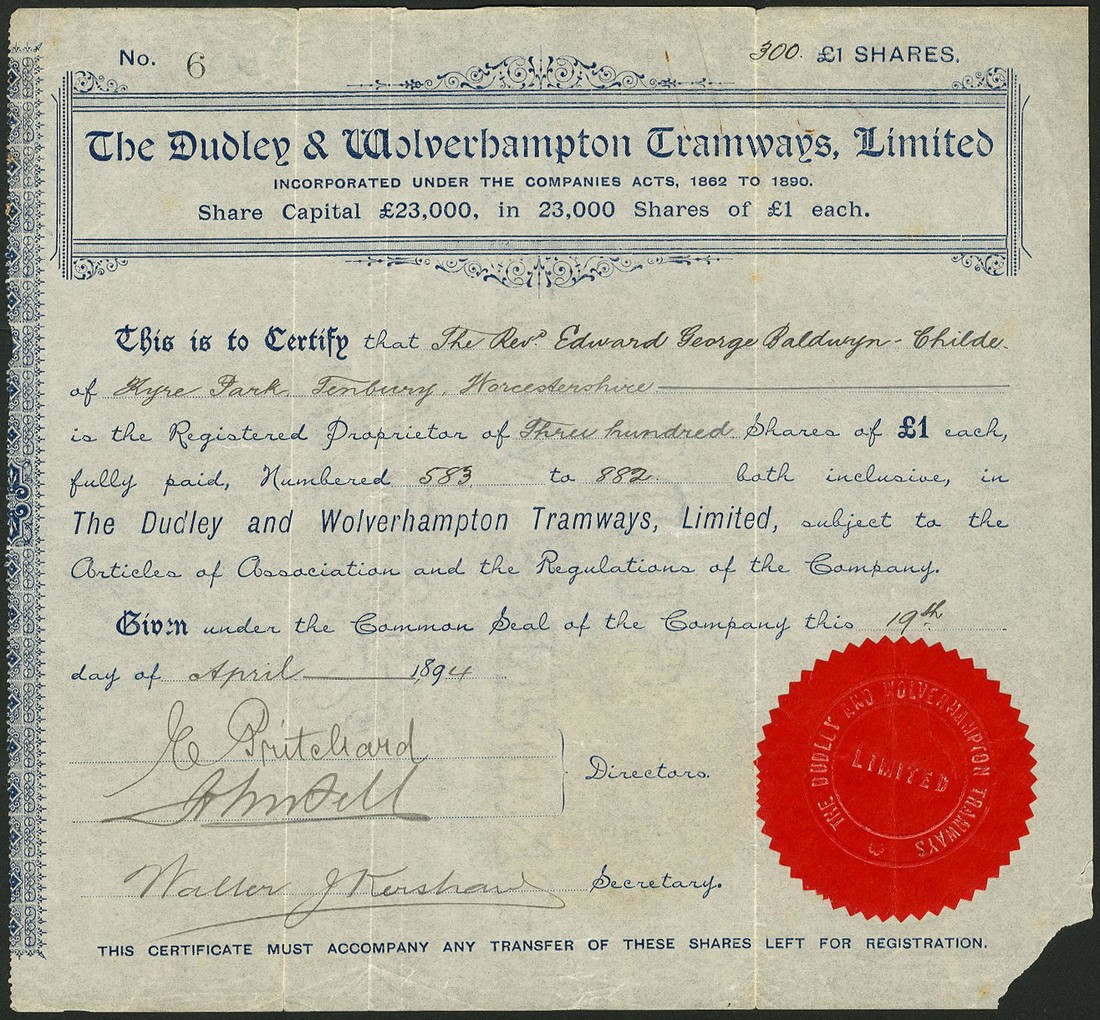 No. 6
300. £1 SHARES.
The Dudley & Wolverhampton Tramways, Limited
INCORPORATED UNDER THE COMPANIES ACTS, 1862 TO 1890.
Share Capital £23,000, in 23,000 Shares of £1 each.
This is to Certify that The Revd Edward George Baldwyn-Childe.
of Kyre Park, Tenbury, Worcestershire
is the Registered Proprietor of Three hundred Shares of £1 each,
fully paid, Numbered 583 to 882. both inclusive, in
The Dudley and Wolverhampton Tramways, Limited, subject to the
Articles of Association and the Regulations of the Company.
Given under the Common Seal of the Company this 19th
day of April 1894
E Pritchard
Directors.
Walter J Kershaw Secretary.
THE DUDLEY AND WOLVERHAMPTON TRAMWAYS
LIMITED
THIS CERTIFICATE MUST ACCOMPANY ANY TRANSFER OF THESE SHARES LEFT FOR REGISTRATION.